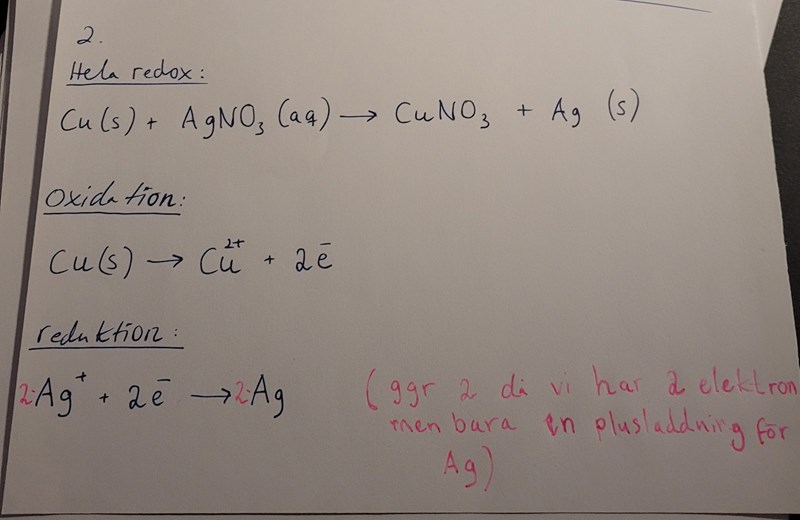 2.
Hela redox:
Cu(s) + AgNO₃ (aq) → CuNO₃ + Ag (s)
Oxidation:
Cu(s) → Cu²⁺ + 2e⁻
reduktion:
2·Ag⁺ + 2e⁻ → 2·Ag (ggr 2 då vi har 2 elektron
men bara en plusladdning för
Ag)